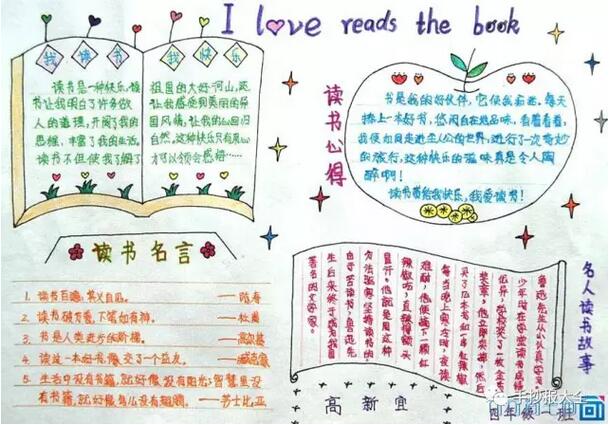 I love reads the book
我读书
我快乐
读书是一种快乐,读
书让我明白了许多做
人的道理,开阔了我的
思维,丰富了我的生活。
读书不但使我了解了
祖国的大好河山,还
让我感受到美丽的异
国风情,让我的心回归
自然,这种快乐只有用心
才可以领会感悟……
读书心得
书是我的好伙伴,它使我奋进。每天
捧上一本好书,悠闲自在地品味,看着看着,
我便如同走进主人公的世界,进行了一次奇妙
的旅行,这种快乐的滋味真是令人陶
醉啊!
读书带给我快乐,我爱读书!
读书名言
1. 读书百遍,其义自见。 ——陈寿
2. 读书破万卷,下笔如有神。 ——杜甫
3. 书是人类进步的阶梯。 ——高尔基
4. 读过一本好书,像交了一个益友。 ——臧克家
5. 生活中没有书籍,就好像没有阳光;智慧里没
有书籍,就好像鸟儿没有翅膀。——莎士比亚
名人读书故事
鲁迅先生从小认真学习。
少年时在学堂读书成绩
优异,学校奖了一枚金质
奖章,他立即卖掉,然后
买了几本书和一串红辣椒
每当晚上寒冷时,夜读
难耐,他便摘下一颗红
辣椒吃,直辣得额头
冒汗。他就是用这种
方法驱寒坚持读书的。
由于苦读书,鲁迅先
生后来终于成为我国
著名的文学家。
高新宜
四年级一班
手抄报大全